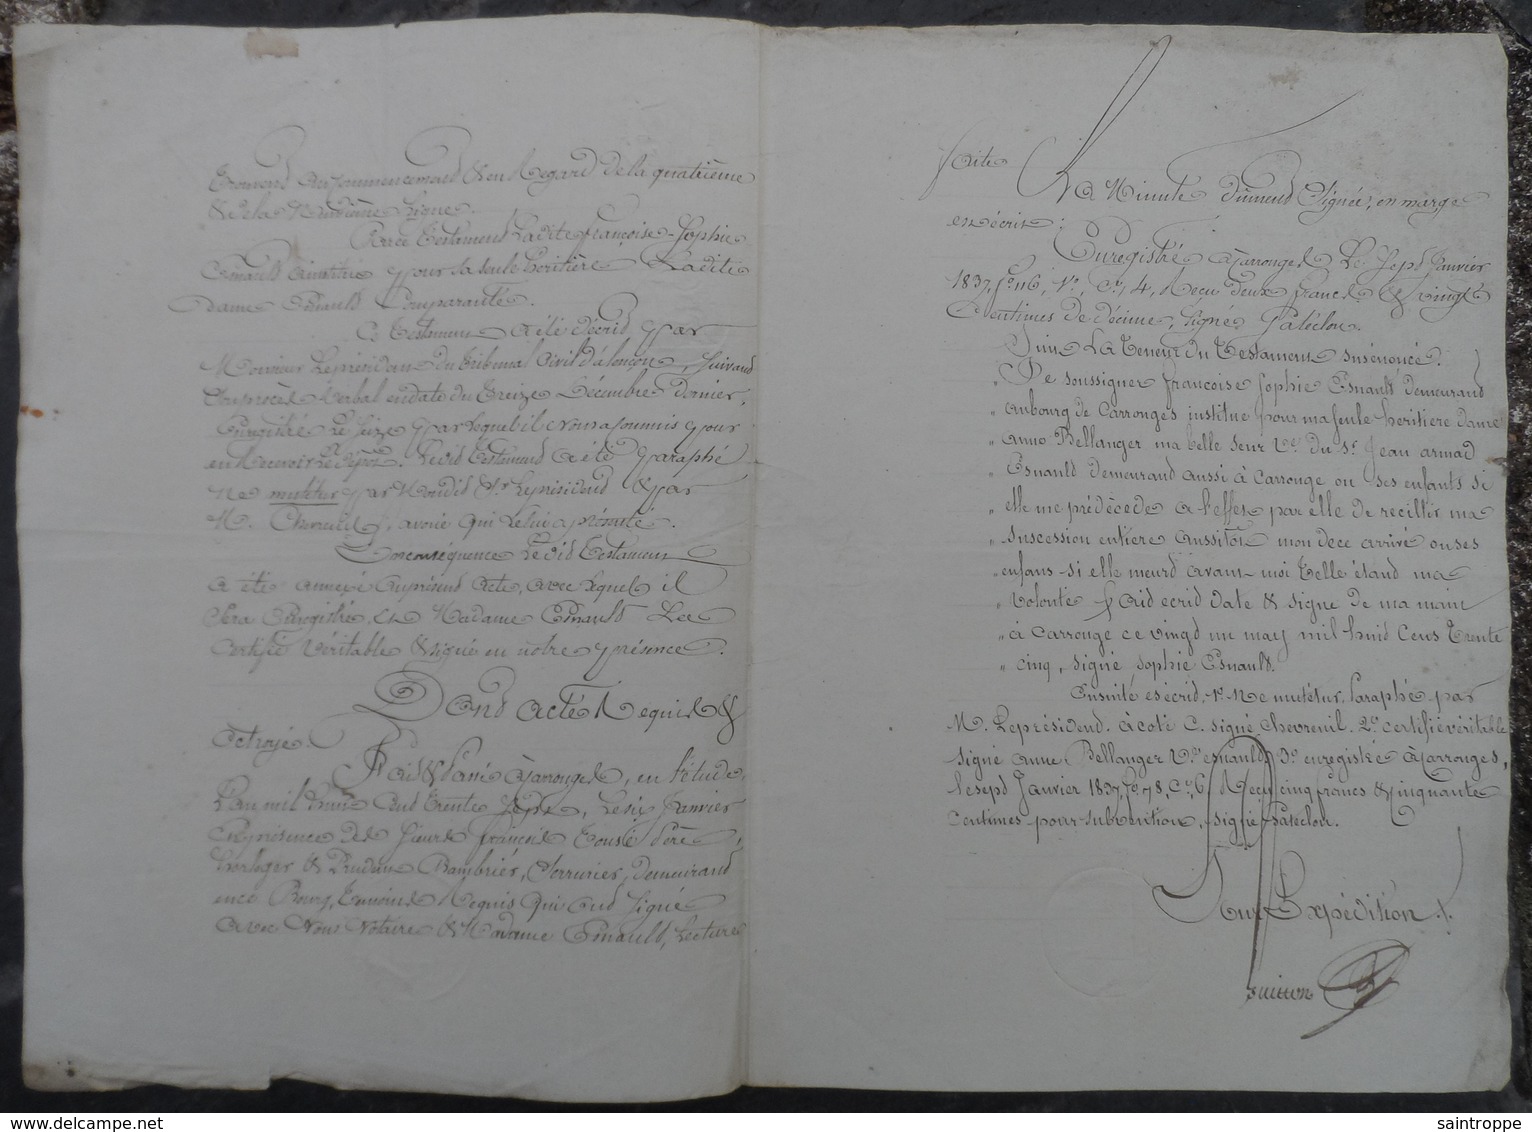 trouvent au commencement & en Regard de la quatrième
& de la Neuvième Ligne.
Par ce testament Ladite françoise-Sophie
Esnault a institué pour sa seule héritière Ladite
Dame Esnault Comparante.
Ce testament a été décrit par
Monsieur Le président du tribunal Civil d'alençon, suivant
Son procès Verbal en date du treize Décembre Dernier,
Enregistré Le seize par lequel il nous a commis pour
en Recevoir Le Dépôt. Le dit testament a été paraphé
ne mutetur par Mondit Sr. Le président & par
M. Chevreuil, avoué qui Le lui a présenté.
En conséquence Le dit testament
a été annexé au présent acte, avec lequel il
Sera Enregistré, et Madame Esnault L'a
Certifié Véritable & signé en notre présence.
Dont acte Requis &
Octroyé.
Fait & Passé à Carrouges, en l'étude,
L'an mil huit Cent trente Sept, Le six Janvier
En présence des sieurs françois tousé Père,
horloger & Prudent Bambrier, Serrurier, demeurant
en ce Bourg, témoins Requis qui ont signé
avec Nous Notaire & Madame Esnault, Lecture
faite
La Minute dûment Signée, en marge
est écrit:
Enregistré à Carrouges Le Sept Janvier
1837, fo. 116, Vo., Ce. 4, Reçu deux francs & vingt
Centimes de décime, signé Patéclou.
Suit La teneur du testament susénoncé.
" Je soussigner francoise sophie Esnault demeurand
" au bourg de Carrouges institue pour ma seule heritiere dame
" anne Bellanger ma belle seur Ve. du Sr. Jean armad
" Esnauld demeurand aussi à Carrouge ou ses enfants si
" elle me prédécède a l'effet par elle de recillir ma
" suscession entiere aussitôt mon dece arrivé ou ses
" enfans si elle meurd avant moi telle étand ma
" volonté fait ecrid date & signe de ma main
" à Carrouge ce vingd un may mil huid cens trente
" cinq, signé, sophie Esnault.
Ensuite est écrit, 1o. Ne mutetur, Paraphé par
M. Le président. à coté C. signé Chevreuil. 2o. certifié véritable
signé anne Bellanger Ve. esnault 3o. enregistré à Carrouges,
le sept Janvier 1837, fo. 78, Ce. 6 Reçu cinq francs & cinquante
Centimes pour subvention, signé Patéclou.
Pour Expédition
saintroppe